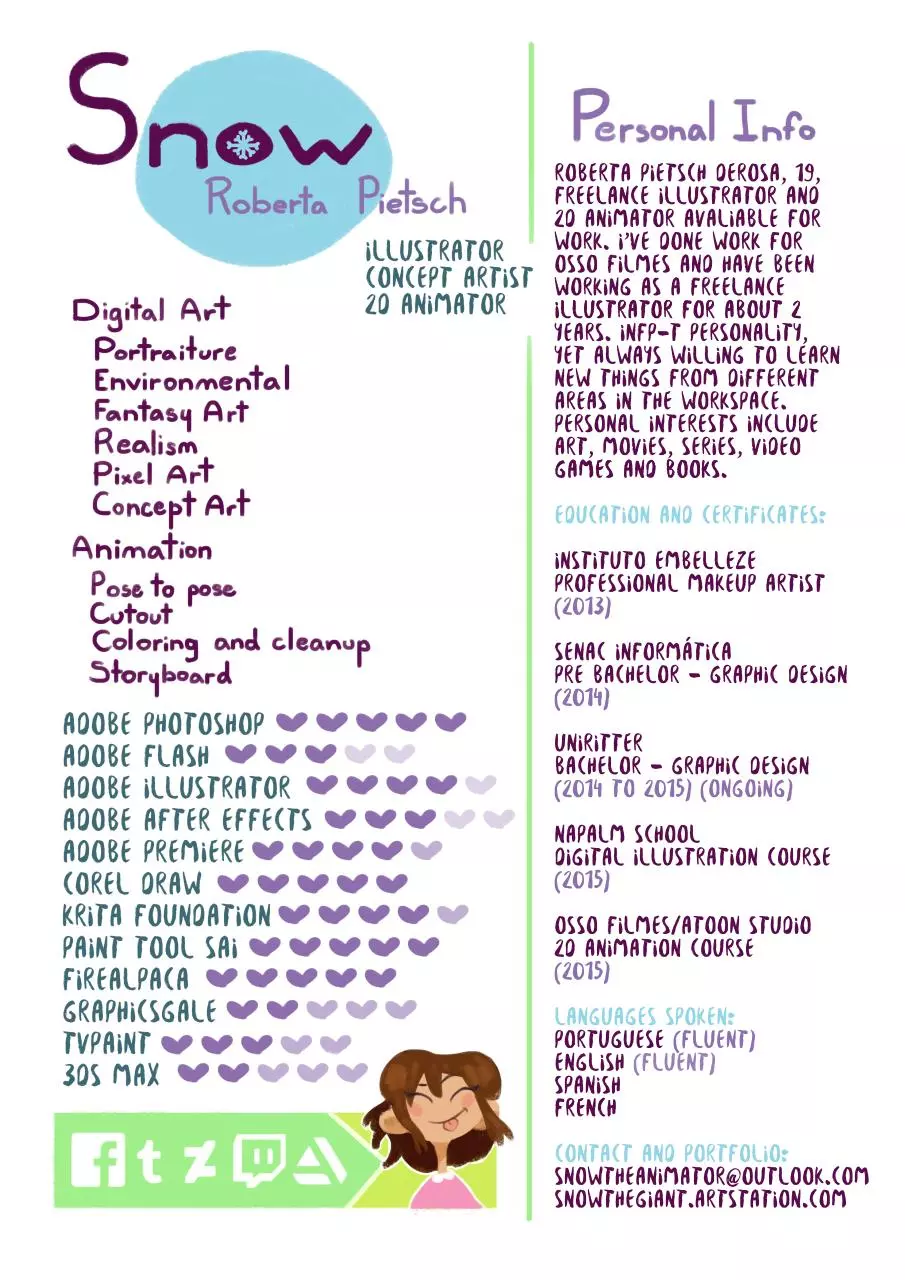 Snow
Roberta Pietsch
ILLUSTRATOR
CONCEPT ARTIST
2D ANIMATOR
Digital Art
Portraiture
Environmental
Fantasy Art
Realism
Pixel Art
Concept Art
Animation
Pose to pose
Cutout
Coloring and cleanup
Storyboard
ADOBE PHOTOSHOP
ADOBE FLASH
ADOBE ILLUSTRATOR
ADOBE AFTER EFFECTS
ADOBE PREMIERE
COREL DRAW
KRITA FOUNDATION
PAINT TOOL SAI
FIREALPACA
GRAPHICSGALE
TVPAINT
3DS MAX
f t
Personal Info
ROBERTA PIETSCH DEROSA, 19,
FREELANCE ILLUSTRATOR AND
2D ANIMATOR AVALIABLE FOR
WORK. I'VE DONE WORK FOR
OSSO FILMES AND HAVE BEEN
WORKING AS A FREELANCE
ILLUSTRATOR FOR ABOUT 2
YEARS. INFP-T PERSONALITY,
YET ALWAYS WILLING TO LEARN
NEW THINGS FROM DIFFERENT
AREAS IN THE WORKSPACE.
PERSONAL INTERESTS INCLUDE
ART, MOVIES, SERIES, VIDEO
GAMES AND BOOKS.
EDUCATION AND CERTIFICATES:
INSTITUTO EMBELLEZE
PROFESSIONAL MAKEUP ARTIST
(2013)
SENAC INFORMÁTICA
PRE BACHELOR - GRAPHIC DESIGN
(2014)
UNIRITTER
BACHELOR - GRAPHIC DESIGN
(2014 TO 2015) (ONGOING)
NAPALM SCHOOL
DIGITAL ILLUSTRATION COURSE
(2015)
OSSO FILMES/ATOON STUDIO
2D ANIMATION COURSE
(2015)
LANGUAGES SPOKEN:
PORTUGUESE (FLUENT)
ENGLISH (FLUENT)
SPANISH
FRENCH
CONTACT AND PORTFOLIO:
SNOWTHEANIMATOR@OUTLOOK.COM
SNOWTHEGIANT.ARTSTATION.COM